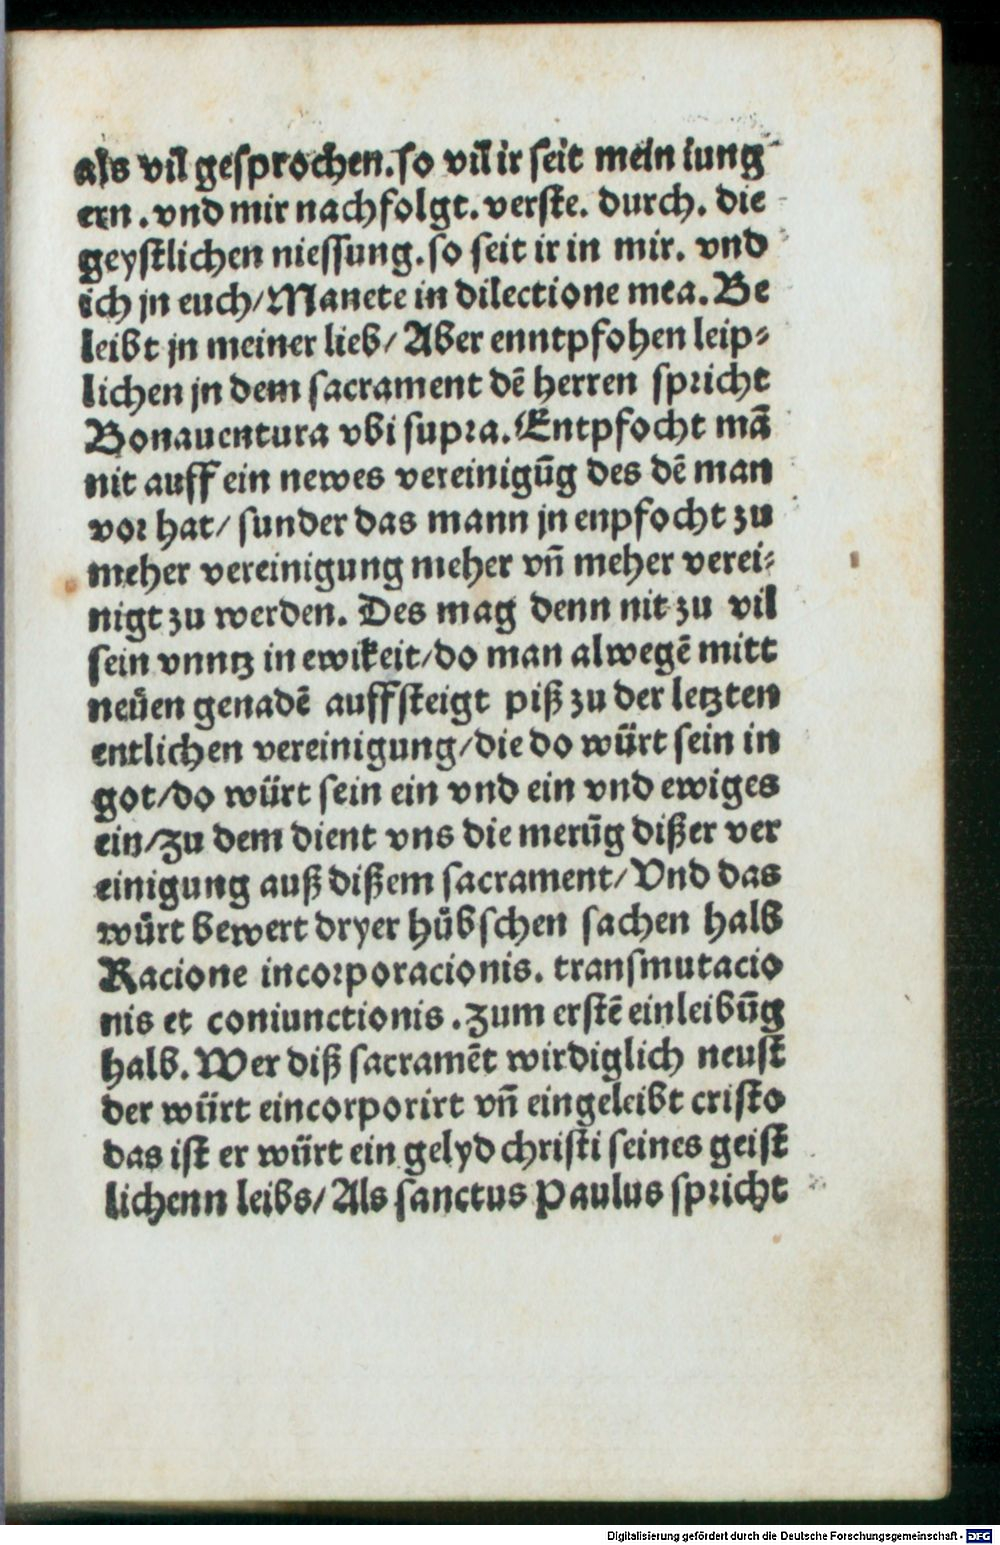 als vil gesprochen. so vil ir seit mein iung
ern. vnd mir nachfolgt. verste. durch. die
geystlichen niessung. so seit ir in mir. vnd
ich jn euch/ Manete in dilectione mea. Be
leibt jn meiner lieb/ Aber enntpfohen leip⸗
lichen jn dem sacrament dē herren spricht
Bonauentura vbi supra. Entpfocht mā
nit auff ein newes vereinigūg des dē man
vor hat/ sunder das mann jn enpfocht zu
meher vereinigung meher vn̄ meher verei⸗
nigt zu werden. Des mag denn nit zu vil
sein vnntz in ewikeit/ do man alwegē mitt
neüen genadē auffsteigt piß zu der letzten
entlichen vereinigung/ die do würt sein in
got/ do würt sein ein vnd ein vnd ewiges
ein/ Zu dem dient vns die merūg dißer ver
einigung auß dißem sacrament/ Vnd das
würt bewert dryer hübschen sachen halb
Racione incorporacionis. transmutacio
nis et coniunctionis. Zum erstē einleibūg
halb. Wer diß sacramēt wirdiglich neust
der würt eincorporirt vn̄ eingeleibt cristo
das ist er würt ein gelyd christi seines geist
lichenn leibs/ Als sanctus Paulus spricht
Digitalisierung gefördert durch die Deutsche Forschungsgemeinschaft - DFG